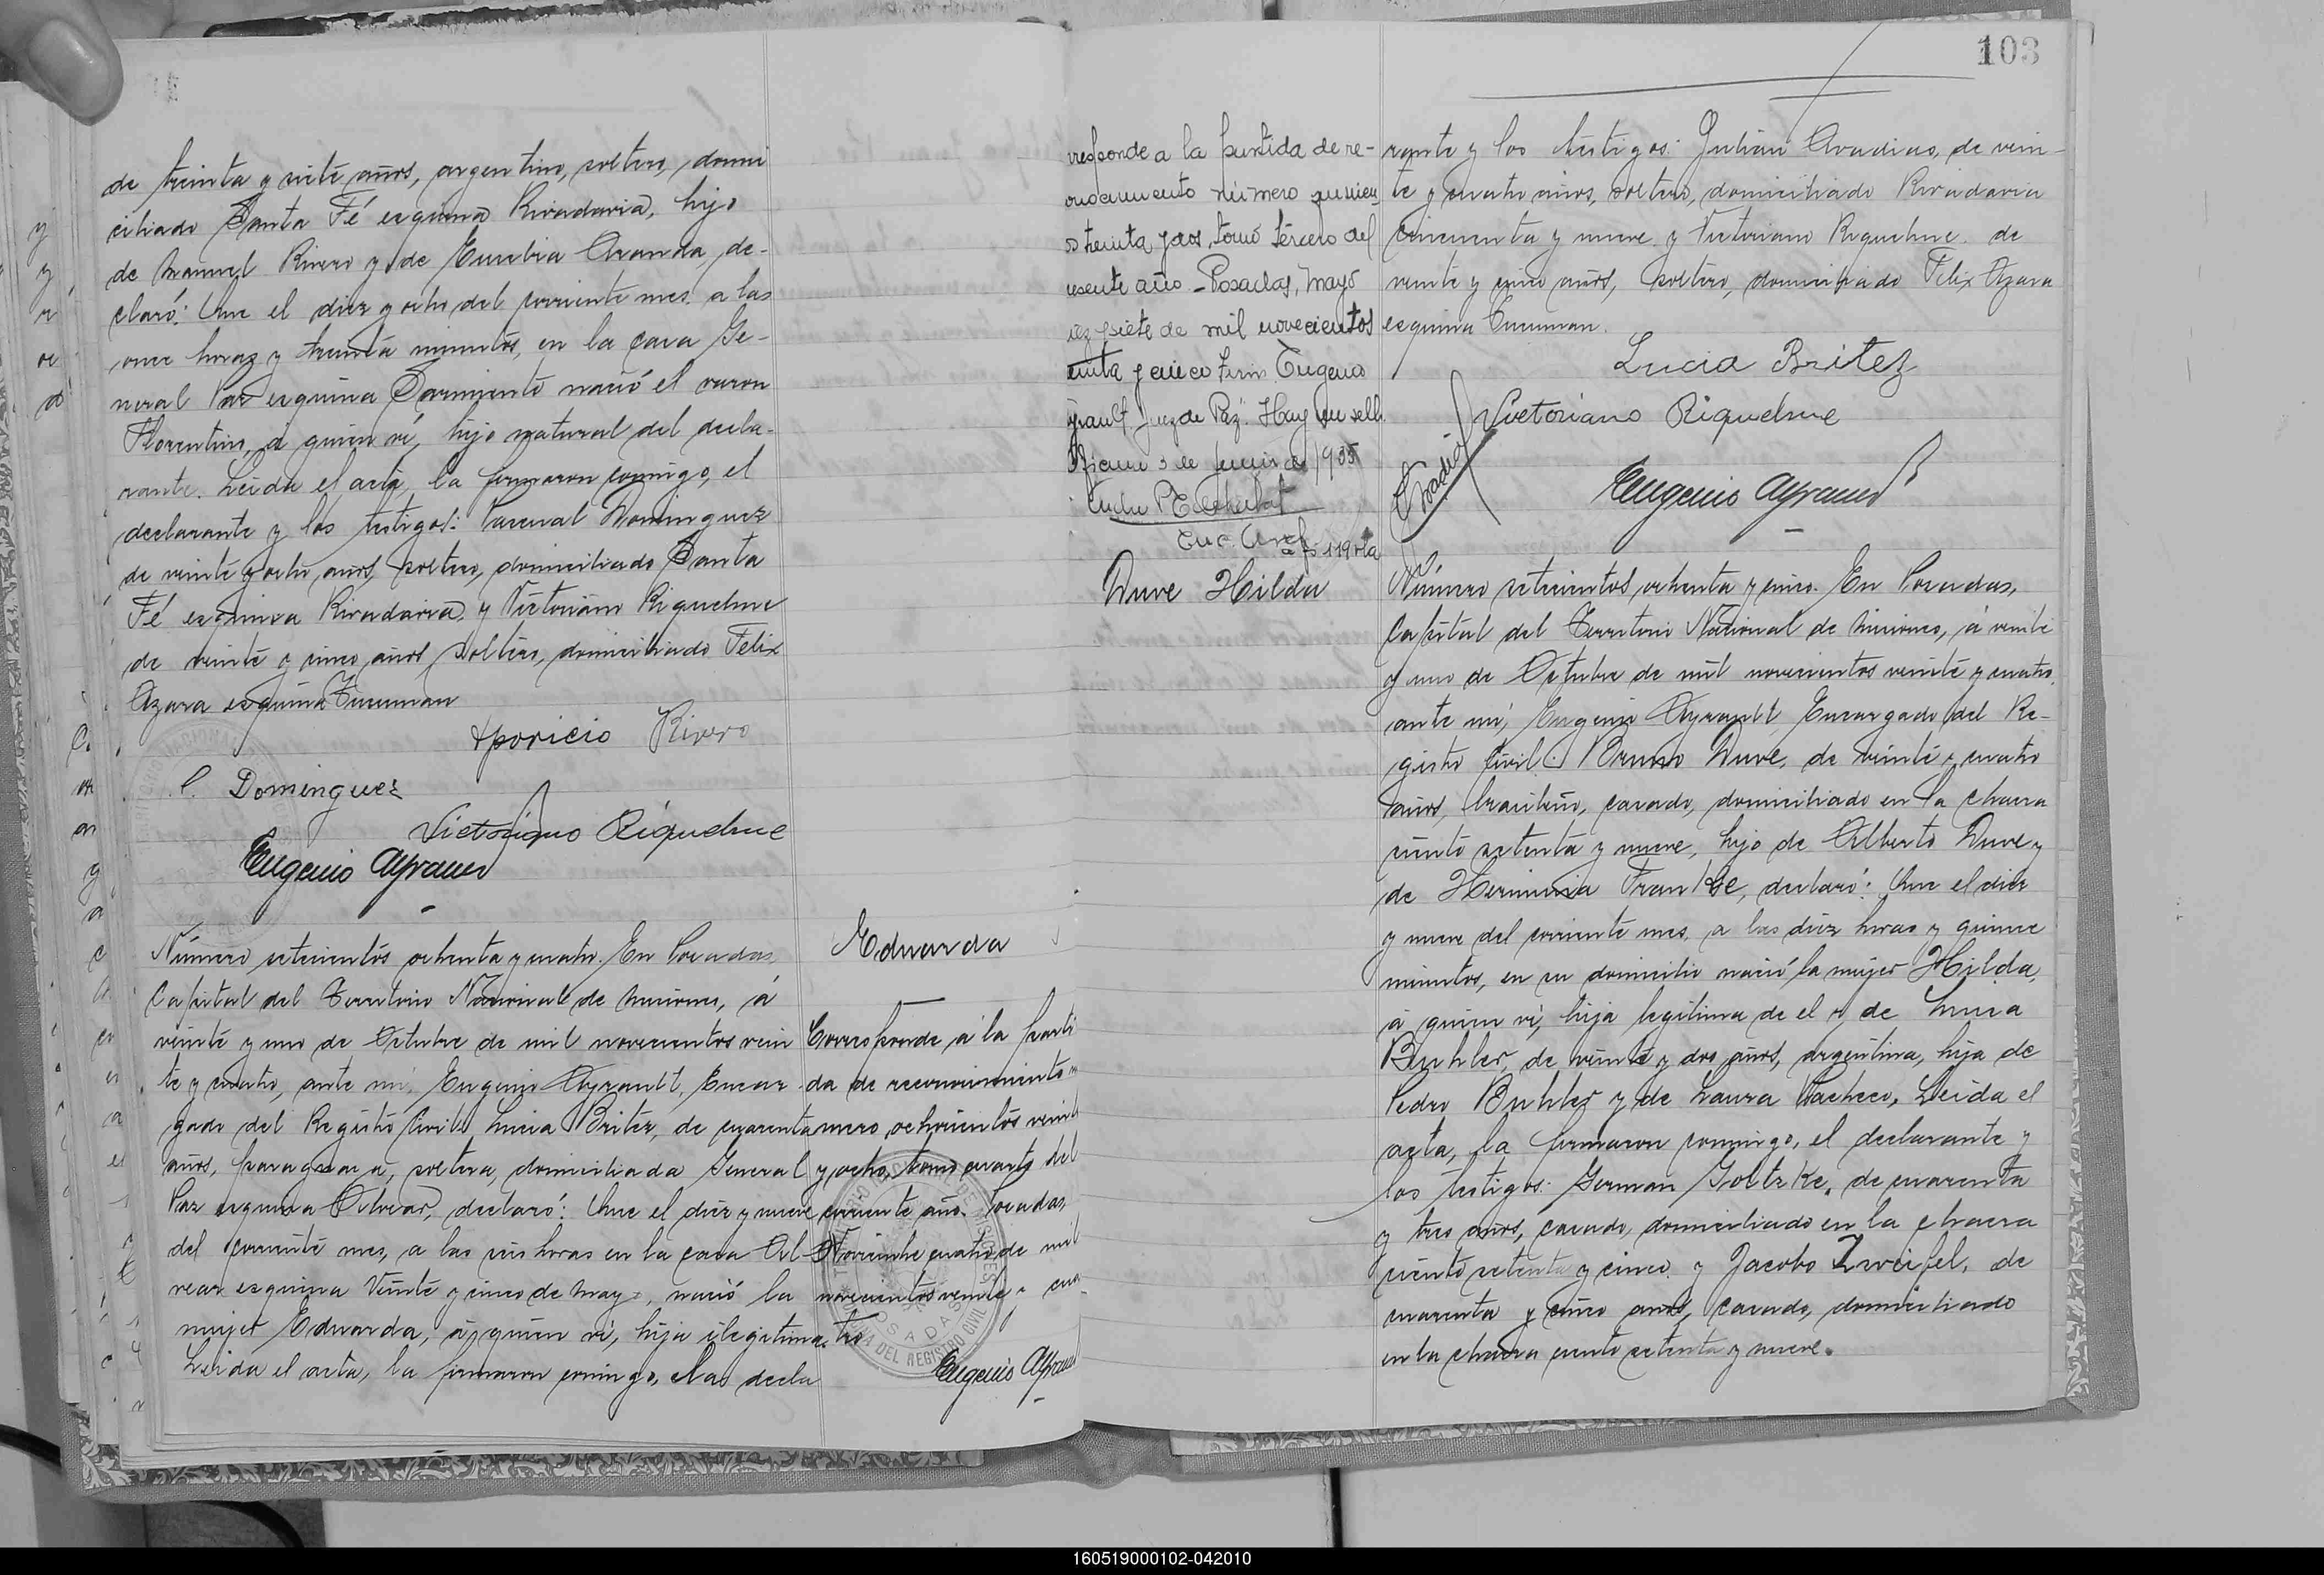 de treinta y siete años, argentino, soltero, domi
ciliado Santa Fé esquina Rivadavia, hijo
de Manuel Rivero y de Eusebia Aranda, de-
claró: Que el diez y ocho del corriente mes, a las
once horas y treinta minutos, en la casa Ge-
neral Paz esquina Sarmiento nació el varon
Florentino, a quien vi, hijo natural del decla-
rante. Leida el acta, la firmaron conmigo, el
declarante y los testigos: Pascual Dominguez
de veinte y ocho años, soltero, domiciliado Santa
Fé esquina Rivadavia, y Victoriano Riquelme
de veinte y cinco años, soltero, domiciliado Felix
Azara esquina Tucuman
Aparicio Rivero
P. Dominguez
Victoriano Riquelme
Eugenio Ayrault
Número setecientos ochenta y cuatro. En Posadas,
Capital del Territorio Nacional de Misiones, á
veinte y uno de Octubre de mil novecientos vein
te y cuatro, ante mi, Eugenio Ayrault, Encar-
gado del Registro Civil, Lucia Britez, de cuarenta
años, paraguaya, soltera, domiciliada General
Paz esquina Alvear, declaró: Que el diez y nueve
del corriente mes, a las seis horas en la casa Al-
vear esquina Veinte y cinco de Mayo, nació la
mujer Eduarda, á quien vi, hija ilegitima.
Leida el acta, la firmaron conmigo, la decla
Eduarda
Corresponde á la parti
da de reconocimiento nú
mero ochocientos veinte
y ocho, tomo cuarto del
corriente año. Posadas,
Noviembre cuatro de mil
novecientos veinte y cua-
tro
Eugenio Ayrault
103
rresponde a la partida de re-
onocimiento número quinien
os treinta y dos, tomo tercero del
resente año - Posadas, Mayo
iez y siete de mil novecientos
einta y cinco Firm. Eugenio
yrault Juez de Paz." Hay un sello.
Oficina 3 de Junio de 1935
Enc. Arch.
a fs 119 vta
rante y los testigos: Julián Avadias, de vein-
te y cuatro años, soltero, domiciliado Rivadavia
cincuenta y nueve y Victoriano Riquelme de
veinte y cinco años, soltero, domiciliado Felix Azara
esquina Tucuman.
Lucia Britez
Victoriano Riquelme
Eugenio Ayrault
Duve Hilda
Número setecientos ochenta y cinco. En Posadas,
Capital del Territorio Nacional de Misiones, á veinte
y uno de Octubre de mil novecientos veinte y cuatro,
ante mi, Eugenio Ayrault, Encargado del Re-
gistro Civil: Bruno Duve, de veinte y cuatro
años, brasileño, casado, domiciliado en la chacra
ciento setenta y nueve, hijo de Alberto Duve y
de Herminia Franke, declaró: Que el diez
y nueve del corriente mes, a las diez horas y quince
minutos, en su domicilio nació la mujer Hilda,
á quien vi, hija legitima de el y de Luisa
Buhler, de veinte y dos años, argentina, hija de
Pedro Buhler y de Laura Pacheco. Leida el
acta, la firmaron conmigo, el declarante y
los testigos: German Goltzke, de cuarenta
y tres años, casado, domiciliado en la chacra
ciento setenta y cinco y Jacobo Zweifel, de
cuarenta y cinco años, casado, domiciliado
en la chacra ciento setenta y nueve.
160519000102-042010